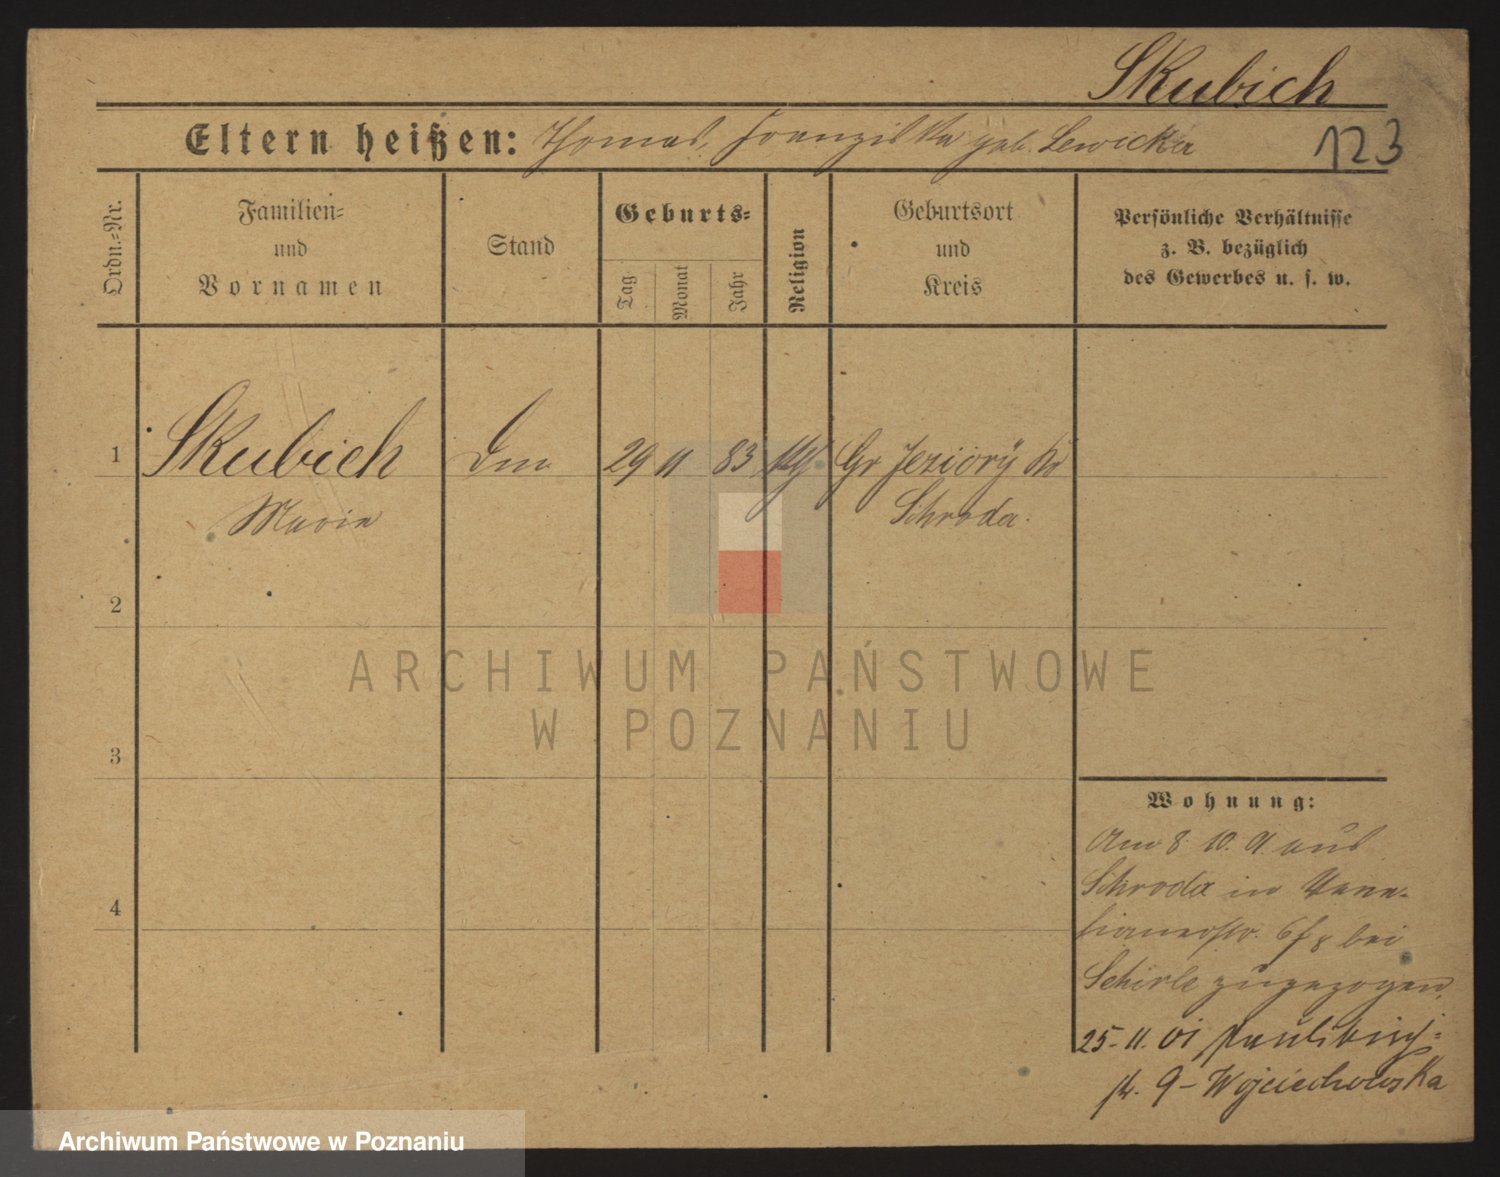 Skubich
Eltern heißen: Thomas, Franziska geb. Lewicka
123
Ordn.-Nr.
Familien-
und
Vornamen
Stand
Geburts-
Tag
Monat
Jahr
Religion
Geburtsort
und
Kreis
Persönliche Verhältnisse
z. B. bezüglich
des Gewerbes u. s. w.
1 Skubich 29 11 83 Gr Jeziory Kr
Maria Schroda.
2
ARCHIWUM PAŃSTWOWE
W POZNANIU
3
Wohnung:
Am 8. 10. aus
Schroda in Vene-
tianerstr. bei
Schirle zugezogen,
4
25-11. 01 Paulikirch-
str. 9 - Wojciechowska
Archiwum Państwowe w Poznaniu